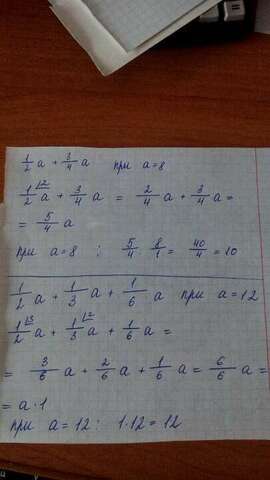 1/2 a + 3/4 a при a=8
1/2 |2 a + 3/4 a = 2/4 a + 3/4 a =
= 5/4 a
при a=8 : 5/4 · 8/1 = 40/4 = 10
1/2 a + 1/3 a + 1/6 a при a=12
1/2 |3 a + 1/3 |2 a + 1/6 a =
= 3/6 a + 2/6 a + 1/6 a = 6/6 a =
= a · 1
при a=12 : 1·12 = 12